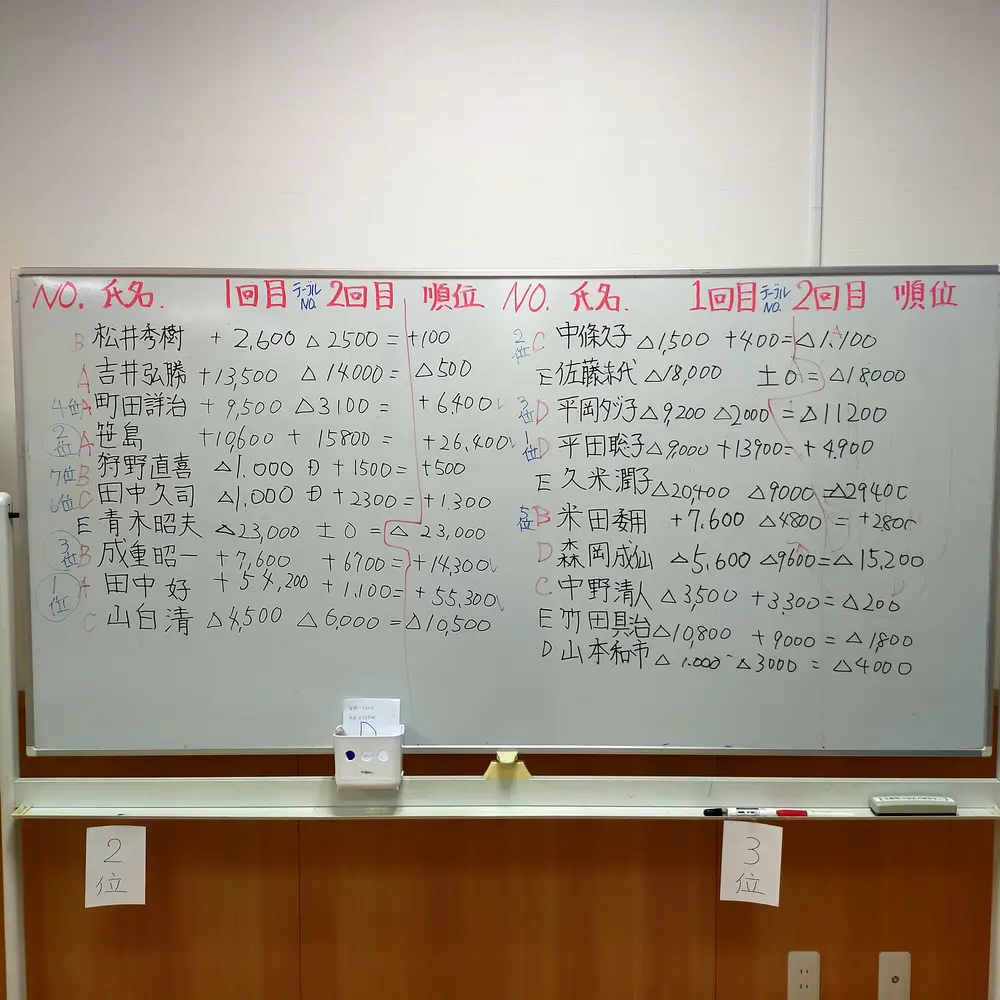 NO. 氏名. 1回目 テーブルNO. 2回目 順位
B 松井秀樹 +2,600 △2500= +100
A 吉井弘勝 +13,500 △14000= △500
4位 A 町田詳治 +9,500 △3100= +6,400
2位 A 笹島 +10,600 +15800= +26,400
7位 B 狩野直喜 △1.000 +1500= +500
6位 C 田中久司 △1.000 +2300= +1.300
E 青木昭夫 △23,000 ±0= △23,000
3位 B 成重昭一 +7,600 +6700= +14,300
1位 A 田中好 +54,200 +1,100= +55,300
C 山白清 △4,500 △6,000= △10,500
NO. 氏名. 1回目 テーブルNO. 2回目 順位
2位 C 中條久子 △1,500 +400= △1.100
E 佐藤未代 △18,000 ±0= △18,000
3位 D 平岡タジ子 △9,200 △2000= △11200
1位 D 平田聡子 △9,000 +13900= +4.900
E 久米潤子 △20,400 △9000= △29400
5位 B 米田委用 +7.600 △4800= +2800
D 森岡成仙 △5,600 △9600= △15,200
C 中野清人 △3,500 +3,300= △200
E 竹田具治 △10,800 +9000= △1,800
D 山本和市 △1.000 △3000= △4000
2位
3位